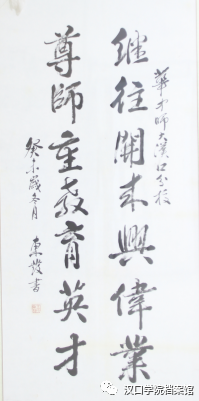 華中師大漢口分校
继往開来興偉業
尊師重教育英才
癸未歲冬月 東發書
汉口学院档案馆